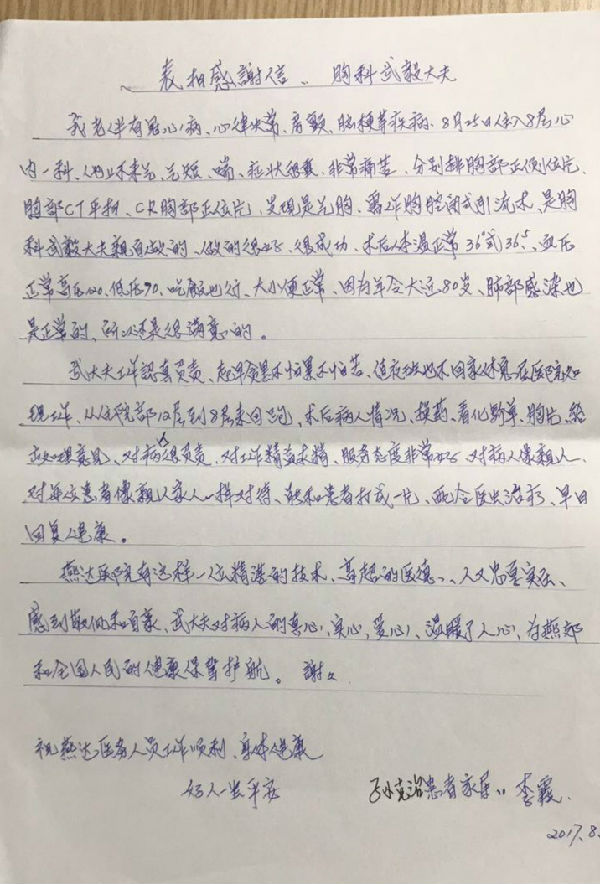 表扬感謝信、胸科武毅大夫
我老伴有冠心病、心律失常、房颤、脑梗等疾病、8月25日住入8层心
内一科、出来气、气短、喘、症状很重、非常痛苦、分别排胸部正侧位片、
胸部CT平扫、CR胸部正位片、发现是气胸、需作胸腔闭式引流术、是胸
科武毅大夫亲自做的、做的很好、很成功、术后体温正常36°或36⁵、血压
正常高压120、低压90、吃饭也行、大小便正常、因为年令大近80岁、肺部感染也
是正常的、所以还是很满意的。
武大夫工作認真负责、起早贪黑不怕累不怕苦、值夜班也不回家休息在医院
工作、从住院部12层到8层来回跑、术后病人情况、换药、看化验单、胸片、给
出处理意见、对病人很负责、对工作精益求精、服务态度非常好、对病人像親人、
对每位患者像親人家人一样对待、能和患者打成一片、配合医生治疗、早日
回复健康。
燕达医院有这样一位精湛的技术、高超的医德、人又忠厚实在、
感到敬佩和自豪、武大夫对病人的真心、实心、爱心、温暖了人心、为燕郊
和全国人民的健康保驾护航。謝〻
祝燕达医务人员工作顺利、身体健康
好人一生平安
患者家属：李霞
2017.8.